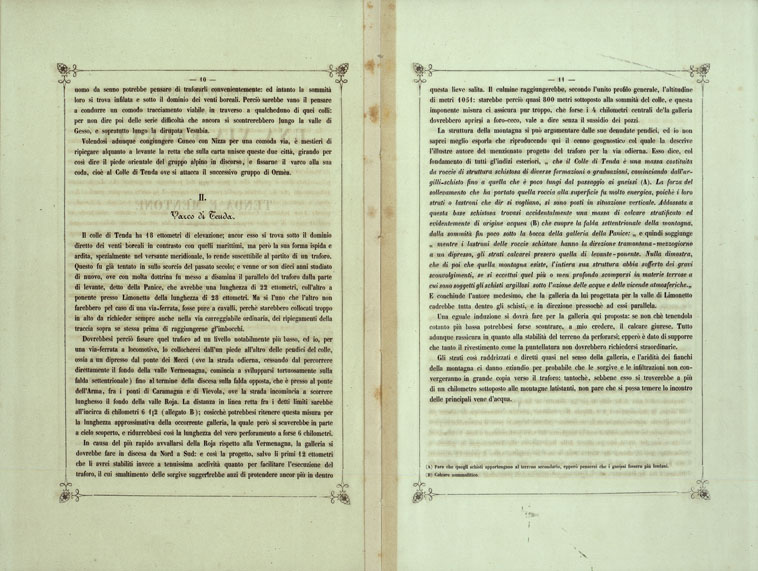 — 10 —
uomo da senno potrebbe pensare di traforarli convenientemente: ed intanto la sommità
loro si trova infilata e sotto il dominio dei venti boreali. Perciò sarebbe vano il pensare
a condurre un comodo tracciamento viabile in traverso a qualcheduno di quei colli:
per non dire poi delle serie difficoltà che ancora si scontrerebbero lungo la valle di
Gesso, e sopratutto lungo la dirupata Vesubia.
Volendosi adunque congiungere Cuneo con Nizza per una comoda via, è mestieri di
ripiegare alquanto a levante la retta che sulla carta unisce queste due città, girando per
così dire il piede orientale del gruppo alpino in discorso, e fissarne il varco alla sua
coda, cioè al Colle di Tenda ove si attacca il successivo gruppo di Ormèa.
II.
Varco di Tenda.
Il colle di Tenda ha 18 ettometri di elevazione; ancor esso si trova sotto il dominio
diretto dei venti boreali in contrasto con quelli marittimi, ma però la sua forma ispida e
ardita, spezialmente nel versante meridionale, lo rende suscettibile al partito di un traforo.
Questo fu già tentato in sullo scorcio del passato secolo; e venne or son dieci anni studiato
di nuovo, ove con molta dottrina fu messo a disamina il paralello del traforo dalla parte
di levante, detto della Panice, che avrebbe una lunghezza di 22 ettometri, coll'altro a
ponente presso Limonetto della lunghezza di 23 ettometri. Ma sì l'uno che l'altro non
farebbero pel caso di una via-ferrata, fosse pure a cavalli, perchè starebbero collocati troppo
in alto da richieder sempre anche nella via carreggiabile ordinaria, dei ripiegamenti della
traccia sopra se stessa prima di raggiungerne gl'imbocchi.
Dovrebbesi perciò fissare quel traforo ad un livello notabilmente più basso, ed io, per
una via-ferrata a locomotive, lo collocherei dall'un piede all'altro delle pendici del colle,
ossia a un dipresso dal ponte dei Mecci (ove la strada odierna, cessando dal percorrere
direttamente il fondo della valle Vermenagna, comincia a svilupparsi tortuosamente sulla
falda settentrionale) fino al termine della discesa sulla falda opposta, che è presso al ponte
dell'Arma, fra i ponti di Caramagna e di Vievola, ove la strada incomincia a scorrere
lunghesso il fondo della valle Roja. La distanza in linea retta fra i detti limiti sarebbe
all'incirca di chilometri 6 1|2 (allegato B); cosicchè potrebbesi ritenere questa misura per
la lunghezza approssimativa della occorrente galleria, la quale però si scaverebbe in parte
a cielo scoperto, e ridurrebbesi così la lunghezza del vero perforamento a forse 6 chilometri.
In causa del più rapido avvallarsi della Roja rispetto alla Vermenagna, la galleria si
dovrebbe fare in discesa da Nord a Sud: e così la progetto, salvo li primi 12 ettometri
che li avrei stabiliti invece a tenuissima acclività quanto per facilitare l'esecuzione del
traforo, il cui smaltimento delle sorgive suggerirebbe anzi di protendere ancor più in dentro
— 11 —
questa lieve salita. Il culmine raggiungerebbe, secondo l'unito profilo generale, l'altitudine
di metri 1051: starebbe perciò quasi 800 metri sottoposto alla sommità del colle, e questa
imponente misura ci assicura pur troppo, che forse i 4 chilometri centrali de'la galleria
dovrebbero aprirsi a foro-ceco, vale a dire senza il sussidio dei pozzi.
La struttura della montagna si può argomentare dalle sue denudate pendici, ed io non
saprei meglio esporla che riproducendo qui il cenno geognostico col quale la descrive
l'illustre autore del menzionato progetto del traforo per la via odierna. Esso dice, col
fondamento di tutti gl'indizi esteriori, „ che il Colle di Tenda è una massa costituita
da roccie di struttura schistosa di diverse formazioni e graduazioni, cominciando dall'ar-
gilli-schisto fino a quella che è poco lungi dal passaggio ai gneissi (A). La forza del
sollevamento che ha portato quella roccia alla superficie fu molto energica, poichè i loro
strati o lastroni che dir si vogliano, si sono posti in situazione verticale. Addossata a
questa base schistosa trovasi accidentalmente una massa di calcare stratificato ed
evidentemente di origine acquea (B) che compre la falda settentrionale della montagna,
dalla sommità fin poco sotto la bocca della galleria della Panice: „ e quindi soggiunge
„ mentre i lastroni delle roccie schistose hanno la direzione tramontana-mezzogiorno
a un dipresso, gli strati calcarei presero quella di levante-ponente. Nulla dimostra,
che di poi che quella montagna esiste, l'intiera sua struttura abbia sofferto dei grani
sconvolgimenti, se si eccettui quel più o men profondo scomporsi in materie terrose a
cui sono soggetti gli schisti argillosi sotto l'azione delle acque e delle vicende atmosferiche.„
E conchiude l'autore medesimo, che la galleria da lui progettata per la valle di Limonetto
cadrebbe tutta dentro gli schisti, e in direzione pressochè ad essi parallela.
Una eguale induzione si dovrà fare per la galleria qui proposta: se non chè tenendola
cotanto più bassa potrebbesi forse scontrare, a mio credere, il calcare giurese. Tutto
adunque rassicura in quanto alla stabilità del terreno da perforarsi; epperò è dato di supporre
che punto il rivestimento come la puntellatura non dovrebbero richiedersi straordinarie.
Gli strati così raddrizzati e diretti quasi nel senso della galleria, e l'aridità dei fianchi
della montagna ci danno eziandio per probabile che le sorgive e le infiltrazioni non con-
vergeranno in grande copia verso il traforo: tantochè, sebbene esso si troverebbe a più
di un chilometro sottoposto alle montagne latistanti, non pare che si possa temere lo incontro
delle principali vene d'acqua.
(A) Pare che quegli schisti appartengano al terreno secondario, epperò penserei che i gneissi fossero più lontani.
(B) Calcare nummulitico.